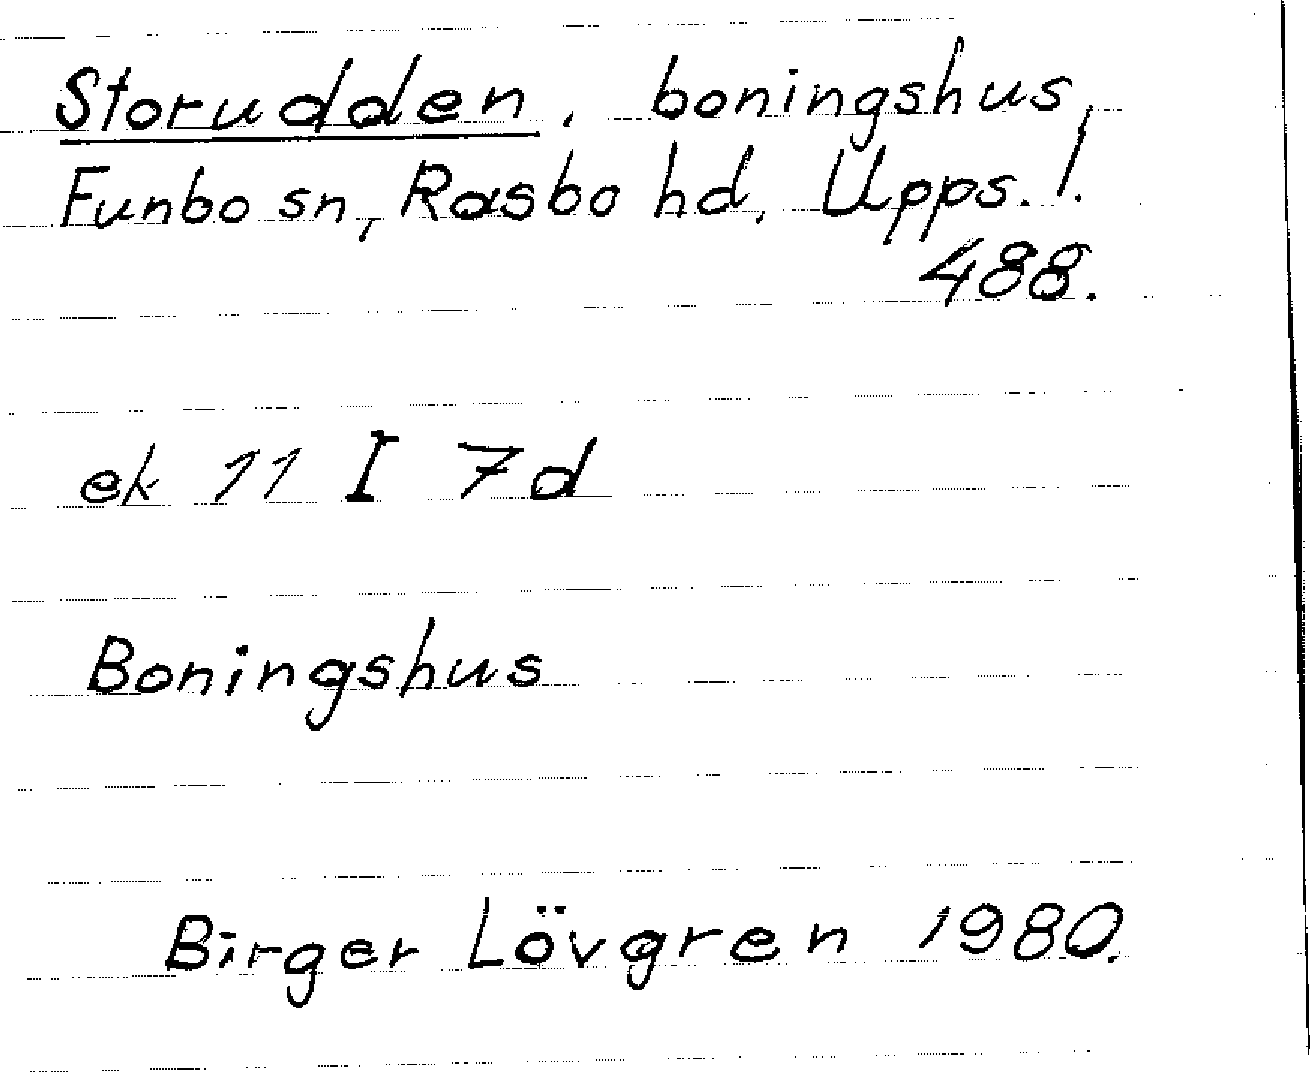 Storudden, boningshus,
Funbo sn, Rasbo hd, Upps. l.
488.
ek 11 I 7d
Boningshus
Birger Lövgren 1980.